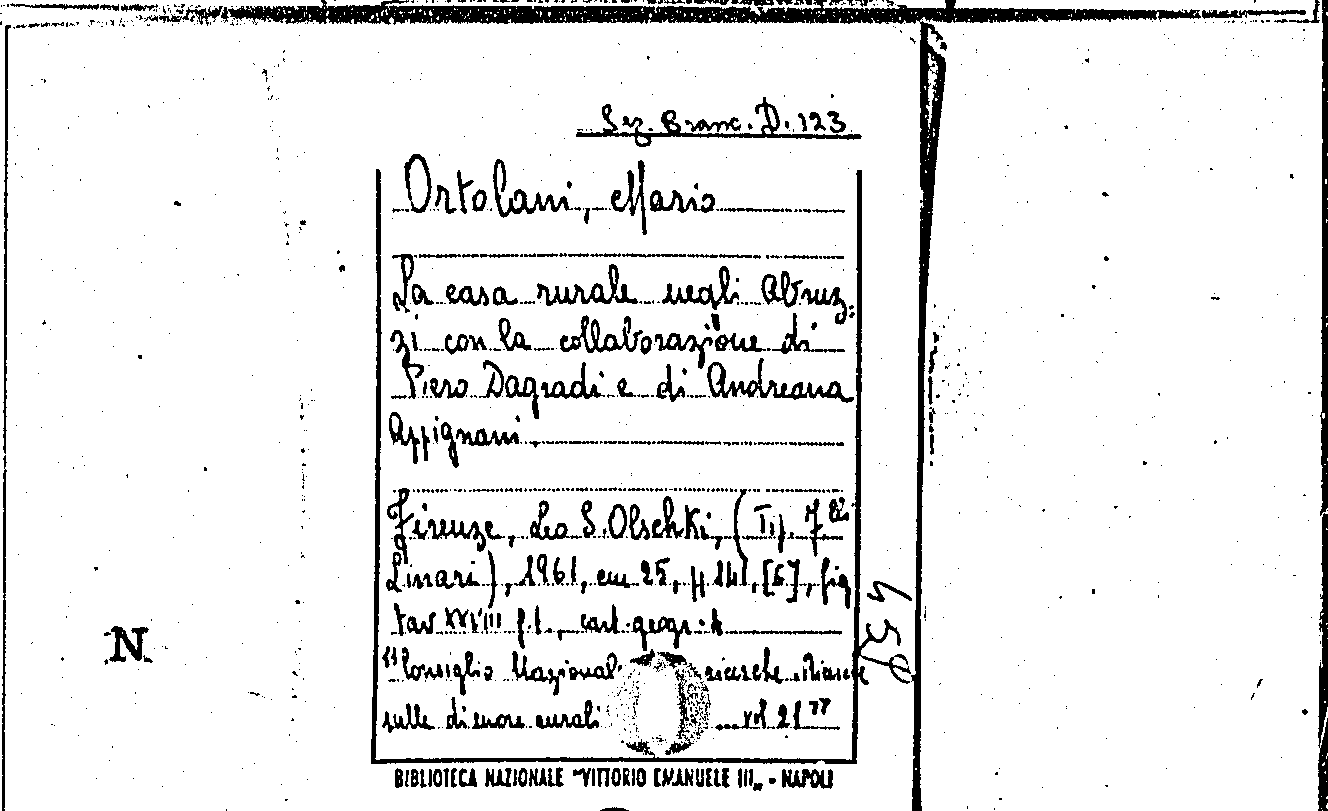 Sez. Branc. D. 123
Ortolani, Mario
La casa rurale negli Abruz-
zi con la collaborazione di
Piero Dagradi e di Andreana
Appignani.
Firenze, Leo S. Olschki, (Tip. F.lli
Linari), 1961, cm 25, p 241, [6], fig
tav XXVIII f.t., cart. geogr.
"Consiglio Nazional ricerche. Ricerche
sulle dimore rurali vol 21"
N
BIBLIOTECA NAZIONALE "VITTORIO EMANUELE III„ - NAPOLI